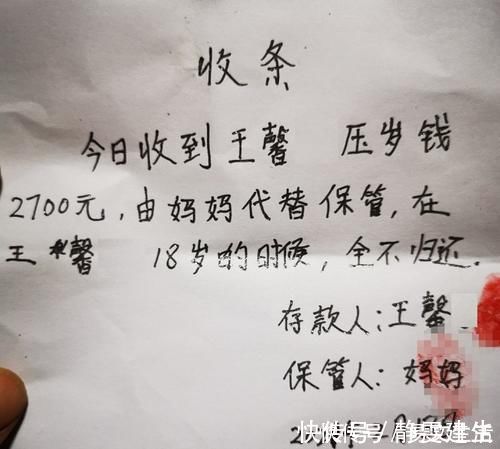 收条
今日收到王馨 压岁钱
2700元，由妈妈代替保管，在
王馨 18岁的时候，全不归还.
存款人：王馨
保管人：妈妈
快传号/